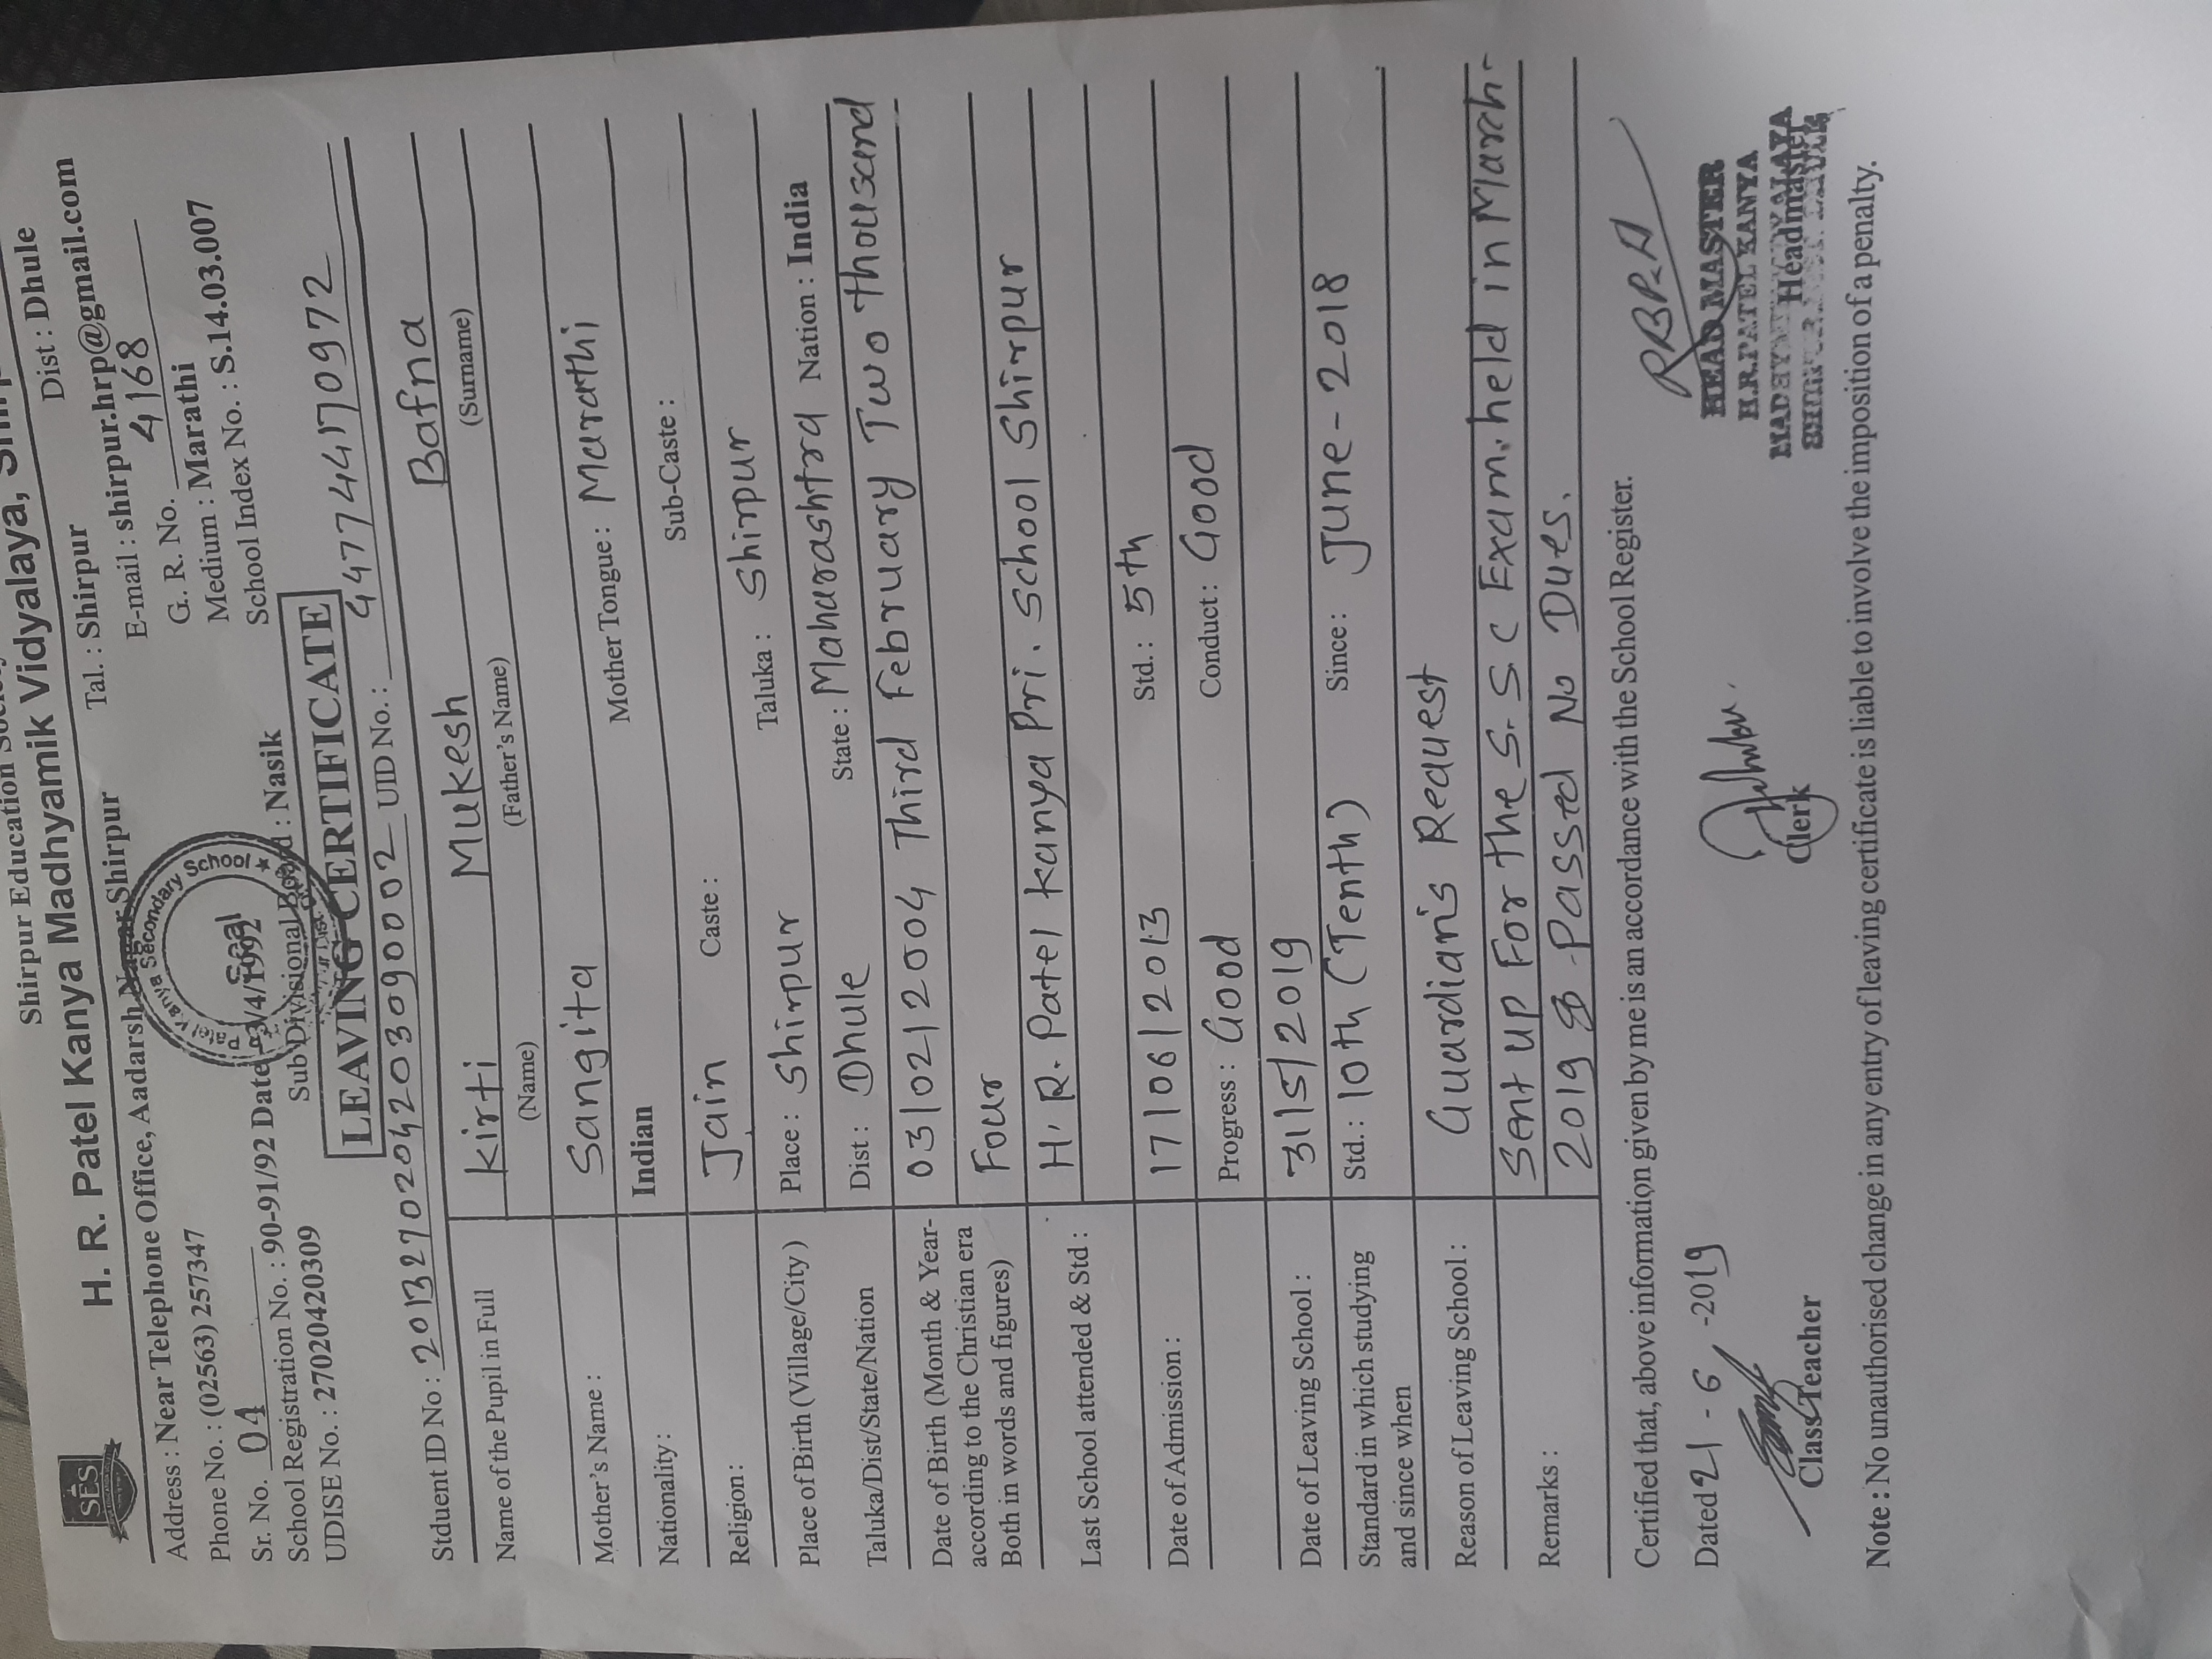 Shirpur Education Society
H. R. Patel Kanya Madhyamik Vidyalaya,
SES
Address : Near Telephone Office, Aadarsh Nagar Shirpur Tal. : Shirpur Dist : Dhule
Phone No. : (02563) 257347 E-mail : shirpur.hrp@gmail.com
Sr. No. 04 G. R. No. 4168
School Registration No. : 90-91/92 Date /4/1992 Medium : Marathi
UDISE No. : 27020420309 Sub Divisional Board : Nasik School Index No. : S.14.03.007
Patel Kanya Secondary School
Seal
LEAVING CERTIFICATE
Stduent ID No : 2013270204203090002 UID No. : 447744170972
Name of the Pupil in Full Kirti Mukesh Bafna
(Name) (Father's Name) (Surname)
Mother's Name : Sangita Mother Tongue : Marathi
Nationality : Indian
Religion: Jain Caste : Sub-Caste :
Place of Birth (Village/City) Place : Shirpur Taluka : Shirpur
Taluka/Dist/State/Nation Dist : Dhule State : Maharashtra Nation : India
Date of Birth (Month & Year- 03/02/2004 Third February Two thousand
according to the Christian era Four
Both in words and figures)
Last School attended & Std : H. R. Patel kanya Pri. School Shirpur
Date of Admission : 17/06/2013 Std. : 5th
Progress : Good Conduct : Good
Date of Leaving School : 31/5/2019
Standard in which studying Std. : 10th (Tenth) Since : June-2018
and since when
Reason of Leaving School : Guardian's Request
Remarks : Sent up For the S.S.C Exam. held in March-
2019 & Passed No Dues.
Certified that, above information given by me is an accordance with the School Register.
Dated 21-6-2019
Class Teacher Clerk Headmaster
HEAD MASTER
H.R.PATEL KANYA
Note : No unauthorised change in any entry of leaving certificate is liable to involve the imposition of a penalty.